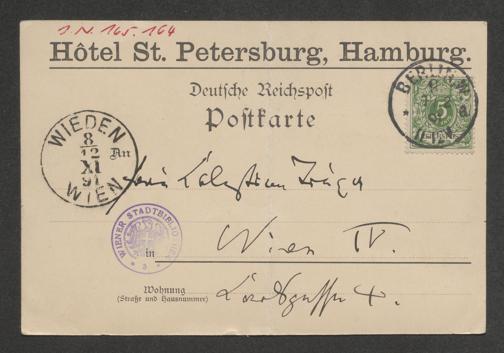 I.N. 165.164
Hôtel St. Petersburg, Hamburg.
Deutsche Reichspost
Postkarte
BERLIN
5
WIEDEN
8/12
XI
91
WIEN
An
Herrn
WIENER STADTBIBLIOTHEK
in
Wien IV.
Wohnung
(Straße und Hausnummer)
4.